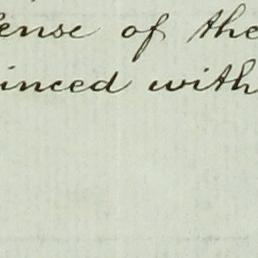 ense of the
inced with